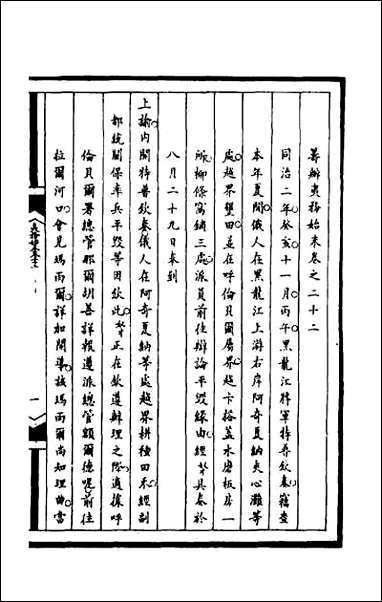 籌辦夷務始末卷之二十二
同治二年癸亥十一月丙午黑龍江將軍特普欽奏竊查
本年夏間俄人在黑龍江上游右岸阿奇夏納夾心灘等
處越界墾田並在呼倫貝爾屬界越卡搭蓋水磨板房一
所柳條窩鋪三處派員前往辯論平毀緣由經奴才具奏於
八月二十九日奉到
上諭內開特普欽奏俄人在阿奇夏納等處越界耕種田禾經副
都統關保率兵平毀等因欽此奴才正在欽遵辦理之際適據呼
倫貝爾署總管那爾胡善詳報遵派總管額爾德呢前往
拉爾河口會見瑪雨爾詳加開導該瑪雨爾尚知理曲當
一